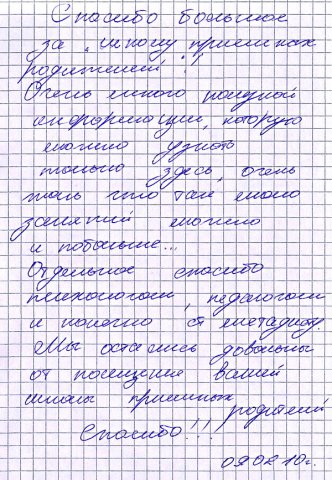 Спасибо большое
за школу приемных
родителей!!
Очень много полезной
информации, которую
можно узнать
только здесь, очень
жаль что так мало
занятий можно
и побольше...
Отдельное спасибо
психологам, педагогам
и конечно ст методисту.
Мы остались довольны
от посещения вашей
школы приемных
родителей
Спасибо!!!
09.02.10г.